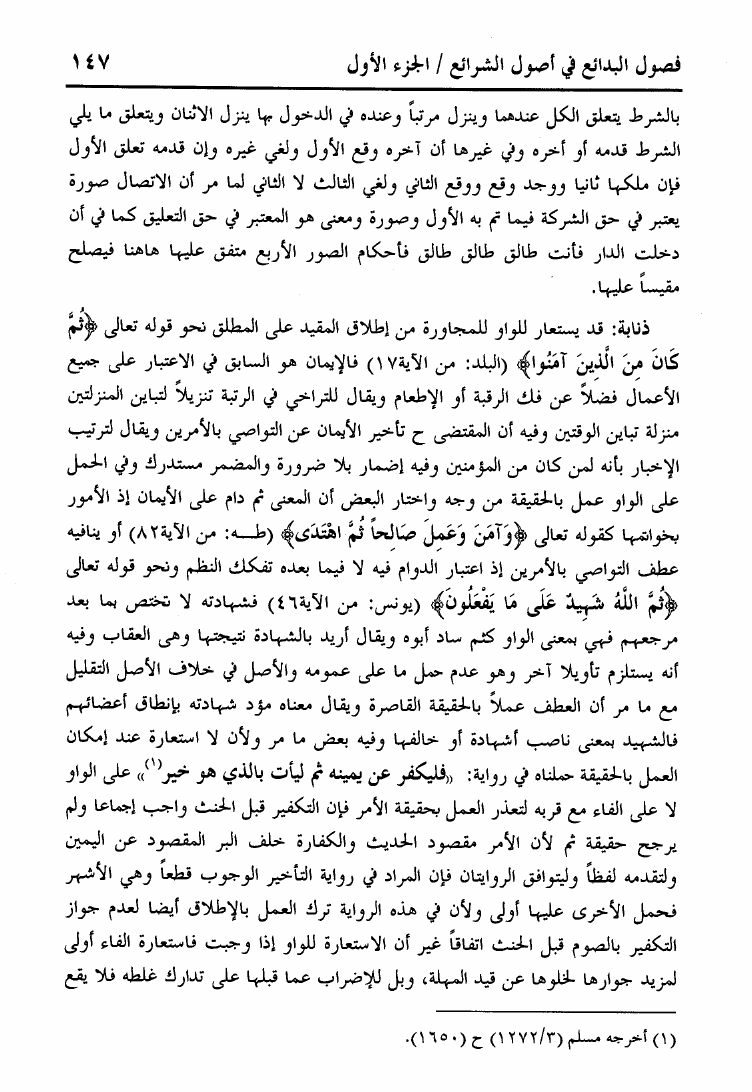 فصول البدائع في أصول الشرائع / الجزء الأول ١٤٧
بالشرط يتعلق الكل عندهما وينزل مرتباً وعنده في الدخول بها ينزل الاثنان ويتعلق ما يلي
الشرط قدمه أو أخره وفي غيرها أن آخره وقع الأول ولغي غيره وإن قدمه تعلق الأول
فإن ملكها ثانيا ووجد وقع ووقع الثاني ولغي الثالث لا الثاني لما مر أن الاتصال صورة
يعتبر في حق الشركة فيما تم به الأول وصورة ومعنى هو المعتبر في حق التعليق كما في أن
دخلت الدار فأنت طالق طالق طالق فأحكام الصور الأربع متفق عليها هاهنا فيصلح
مقيساً عليها.
ذنابة: قد يستعار للواو للمجاورة من إطلاق المقيد على المطلق نحو قوله تعالى ﴿ثُمَّ
كَانَ مِنَ الَّذِينَ آمَنُوا﴾ (البلد: من الآية١٧) فالإيمان هو السابق في الاعتبار على جميع
الأعمال فضلاً عن فك الرقبة أو الإطعام ويقال للتراخي في الرتبة تنزيلاً لتباين المنزلتين
منزلة تباين الوقتين وفيه أن المقتضى ح تأخير الأيمان عن التواصي بالأمرين ويقال لترتيب
الإخبار بأنه لمن كان من المؤمنين وفيه إضمار بلا ضرورة والمضمر مستدرك وفي الحمل
على الواو عمل بالحقيقة من وجه واختار البعض أن المعنى ثم دام على الأيمان إذ الأمور
بخواتمها كقوله تعالى ﴿وَآمَنَ وَعَمِلَ صَالِحاً ثُمَّ اهْتَدَى﴾ (طـــه: من الآية٨٢) أو ينافيه
عطف التواصي بالأمرين إذ اعتبار الدوام فيه لا فيما بعده تفكك النظم ونحو قوله تعالى
﴿ثُمَّ اللَّهُ شَهِيدٌ عَلَى مَا يَفْعَلُونَ﴾ (يونس: من الآية٤٦) فشهادته لا تختص بما بعد
مرجعهم فهي بمعنى الواو كثم ساد أبوه ويقال أريد بالشهادة نتيجتها وهى العقاب وفيه
أنه يستلزم تأويلا آخر وهو عدم حمل ما على عمومه والأصل في خلاف الأصل التقليل
مع ما مر أن العطف عملاً بالحقيقة القاصرة ويقال معناه مؤد شهادته بإنطاق أعضائهم
فالشهيد بمعنى ناصب أشهادة أو خالفها وفيه بعض ما مر ولأن لا استعارة عند إمكان
العمل بالحقيقة حملناه في رواية: «فليكفر عن يمينه ثم ليأت بالذي هو خير(١)» على الواو
لا على الفاء مع قربه لتعذر العمل بحقيقة الأمر فإن التكفير قبل الحنث واجب إجماعا ولم
يرجح حقيقة ثم لأن الأمر مقصود الحديث والكفارة خلف البر المقصود عن اليمين
ولتقدمه لفظاً وليتوافق الروايتان فإن المراد في رواية التأخير الوجوب قطعاً وهي الأشهر
فحمل الأخرى عليها أولى ولأن في هذه الرواية ترك العمل بالإطلاق أيضا لعدم جواز
التكفير بالصوم قبل الحنث اتفاقاً غير أن الاستعارة للواو إذا وجبت فاستعارة الفاء أولى
لمزيد جوارها لخلوها عن قيد المهلة، وبل للإضراب عما قبلها على تدارك غلطه فلا يقع
(١) أخرجه مسلم (١٢٧٢/٣) ح (١٦٥٠).